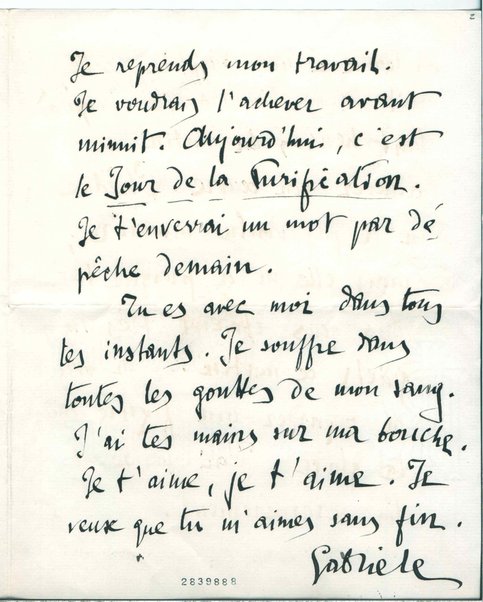 2
Je reprends mon travail.
Je voudrais l'achever avant
minuit. Aujourd'hui, c'est
le Jour de la Purification.
Je t'enverrai un mot par dé
pêche demain.
Tu es avec moi dans tous
tes instants. Je souffre dans
toutes les gouttes de mon sang.
J'ai tes mains sur ma bouche.
Je t'aime, je t'aime. Je
veux que tu m'aimes sans fin.
Gabriele
2839888